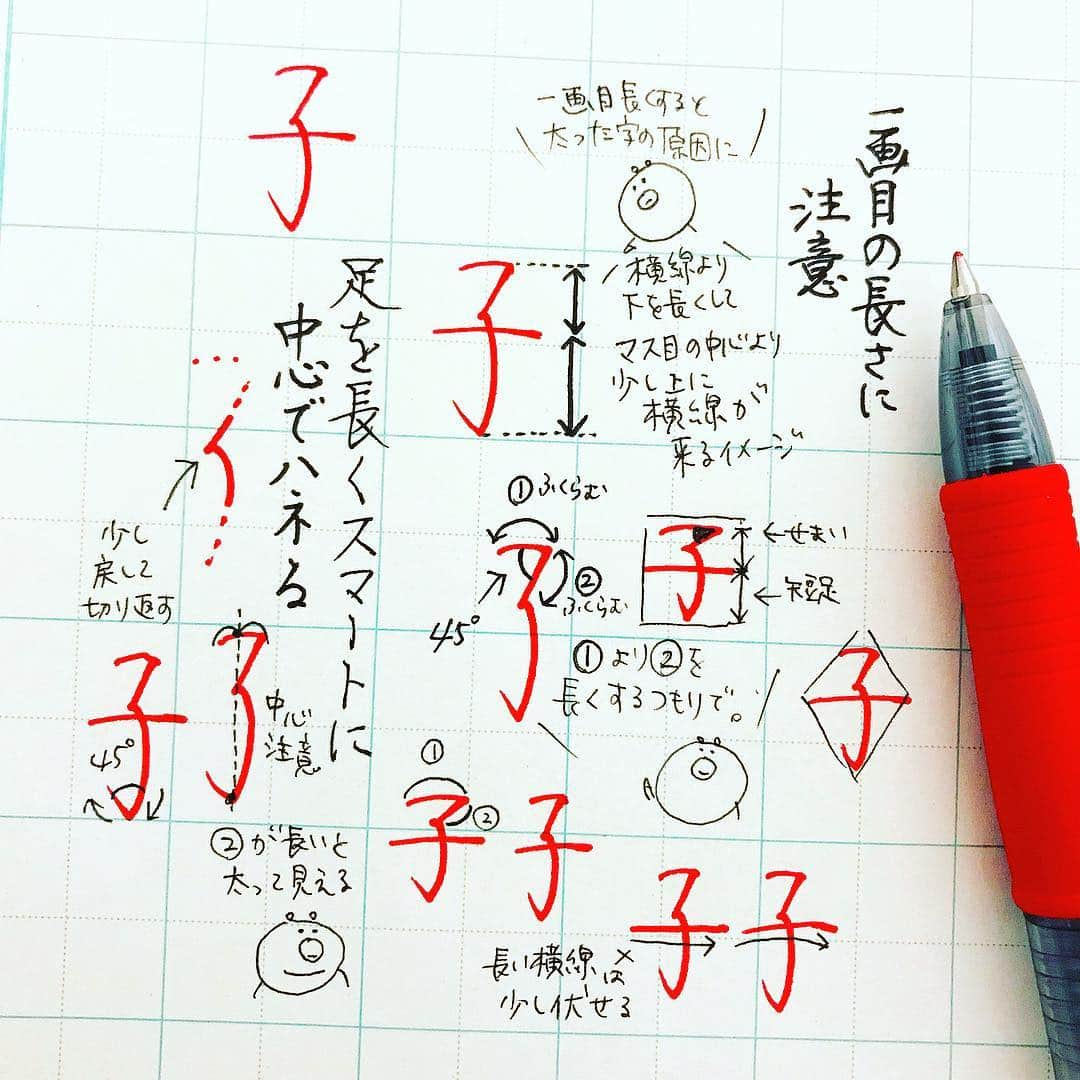 一画目の長さに
注意
一画目長くすると
太った字の原因に
子
横線より
下を長くして
マス目の中心より
少し上に
横線が
来るイメージ
子
足を長くスマートに
中心でハネる
少し
戻して
切り返す
①ふくらむ
②
ふくらむ
45°
了
子
←せまい
←短足
①より②を
長くするつもりで。
子
子
45°
了
中心
注意
①
②
子
子
②が長いと
太って見える
子
子
×
長い横線は
少し伏せる